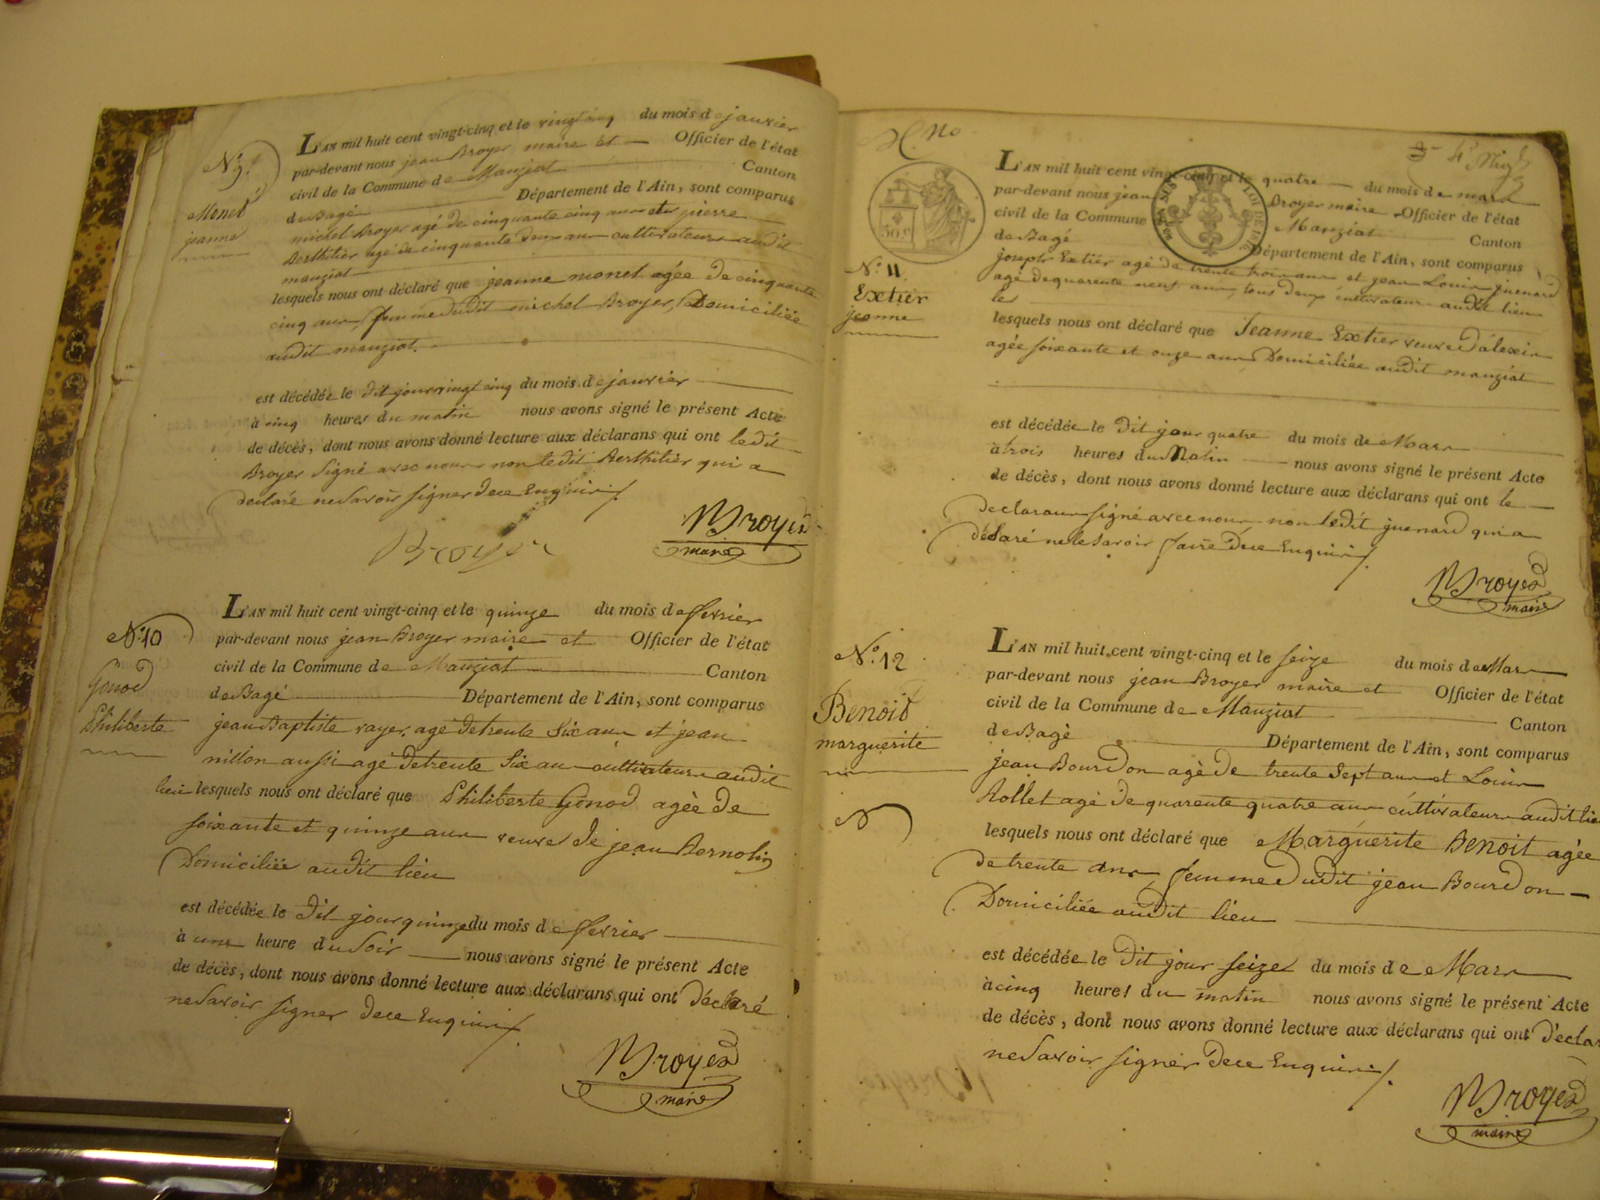 N.° 9.
Monet
jeanne
L'AN mil huit cent vingt-cinq et le vingt cinq du mois de janvier
par-devant nous jean Broyer maire et Officier de l'état
civil de la Commune de Manziat Canton
de Bagé Département de l'Ain, sont comparus
michel Broyer agé de cinquante cinq ans et pierre
Berthilier agé de cinquante deux ans cultivateurs audit
manziat
lesquels nous ont déclaré que jeanne monet agée de cinquante
cinq ans, femme dudit michel Broyer, Domiciliée
audit manziat.
est décédée le dit jour vingt cinq du mois de janvier
à cinq heures du matin nous avons signé le présent Acte
de décès, dont nous avons donné lecture aux déclarans qui ont ledit
Broyer signé avec nous non ledit Berthilier qui a
declaré ne savoir signer de ce Enquis
Broyer
Broyer
maire
N.° 10
Gonod
Philiberte
L'AN mil huit cent vingt-cinq et le quinze du mois de fevrier
par-devant nous jean Broyer maire et Officier de l'état
civil de la Commune de Manziat Canton
de Bagé Département de l'Ain, sont comparus
jean Baptiste rayer agé de trente Six ans et jean
nillon aussi agé de trente Six ans cultivateurs audit
lieu lesquels nous ont déclaré que Philiberte Gonod agée de
soixante et quinze ans veuve de jean Bernolin
Domiciliée audit lieu
est décédée le Dit jour quinze du mois de fevrier
à une heure du Soir nous avons signé le présent Acte
de décès, dont nous avons donné lecture aux déclarans qui ont déclaré
ne Savoir signer de ce Enquis
Broyer
maire
50 c
LOI DE
N.° 11
Extier
jeanne
L'AN mil huit cent vingt-cinq et le quatre du mois de mars
par-devant nous jean Broyer maire Officier de l'état
civil de la Commune Manziat Canton
de Bagé Département de l'Ain, sont comparus
joseph Extier agé de trente trois ans et jean Louis guenard
agé de quarente neuf ans, tous deux cultivateurs audit lieu
les
lesquels nous ont déclaré que Jeanne Extier veuve d'alexis
agée soixante et onze ans Domiciliée audit manziat
est décédée le Dit jour quatre du mois de Mars
à trois heures du Matin nous avons signé le présent Acte
de décès, dont nous avons donné lecture aux déclarans qui ont le
declarans signé avec nous non ledit guenard qui a
déclaré ne le savoir faire de ce Enquis
Broyer
maire
N.° 12
Benoit
marguerite
L'AN mil huit cent vingt-cinq et le seize du mois de Mars
par-devant nous jean Broyer maire et Officier de l'état
civil de la Commune de Manziat Canton
de Bagé Département de l'Ain, sont comparus
jean Bourdon agé de trente Sept ans et Louis
Rollet agé de quarente quatre ans cultivateurs audit lieu
lesquels nous ont déclaré que Marguerite Benoit agée
de trente ans femme dudit jean Bourdon
Domiciliée audit lieu
est décédée le Dit jour seize du mois de Mars
à cinq heures du matin nous avons signé le présent Acte
de décès, dont nous avons donné lecture aux déclarans qui ont déclar
ne Savoir signer de ce Enquis
Broyer
maire